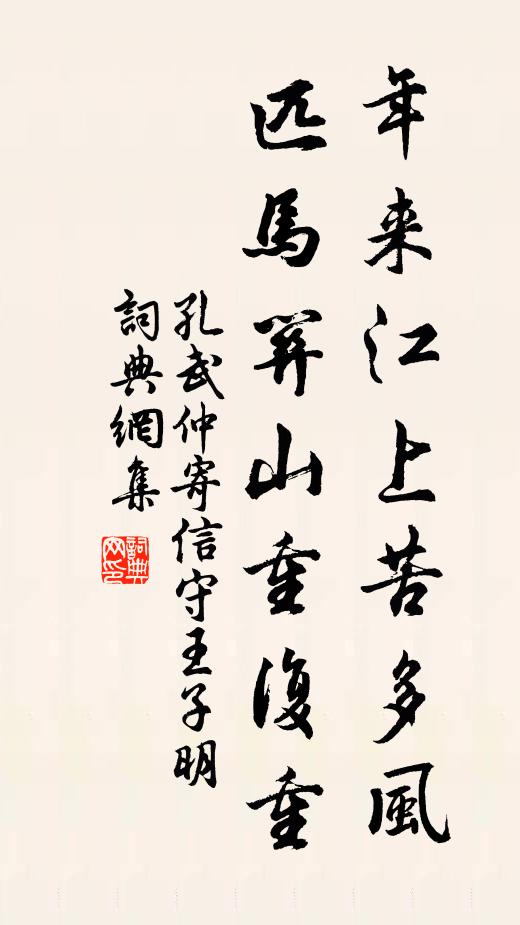 年来江上苦多風
匹馬関山重復重
孔武仲寄信守王子明
詞典網集
詞典网印